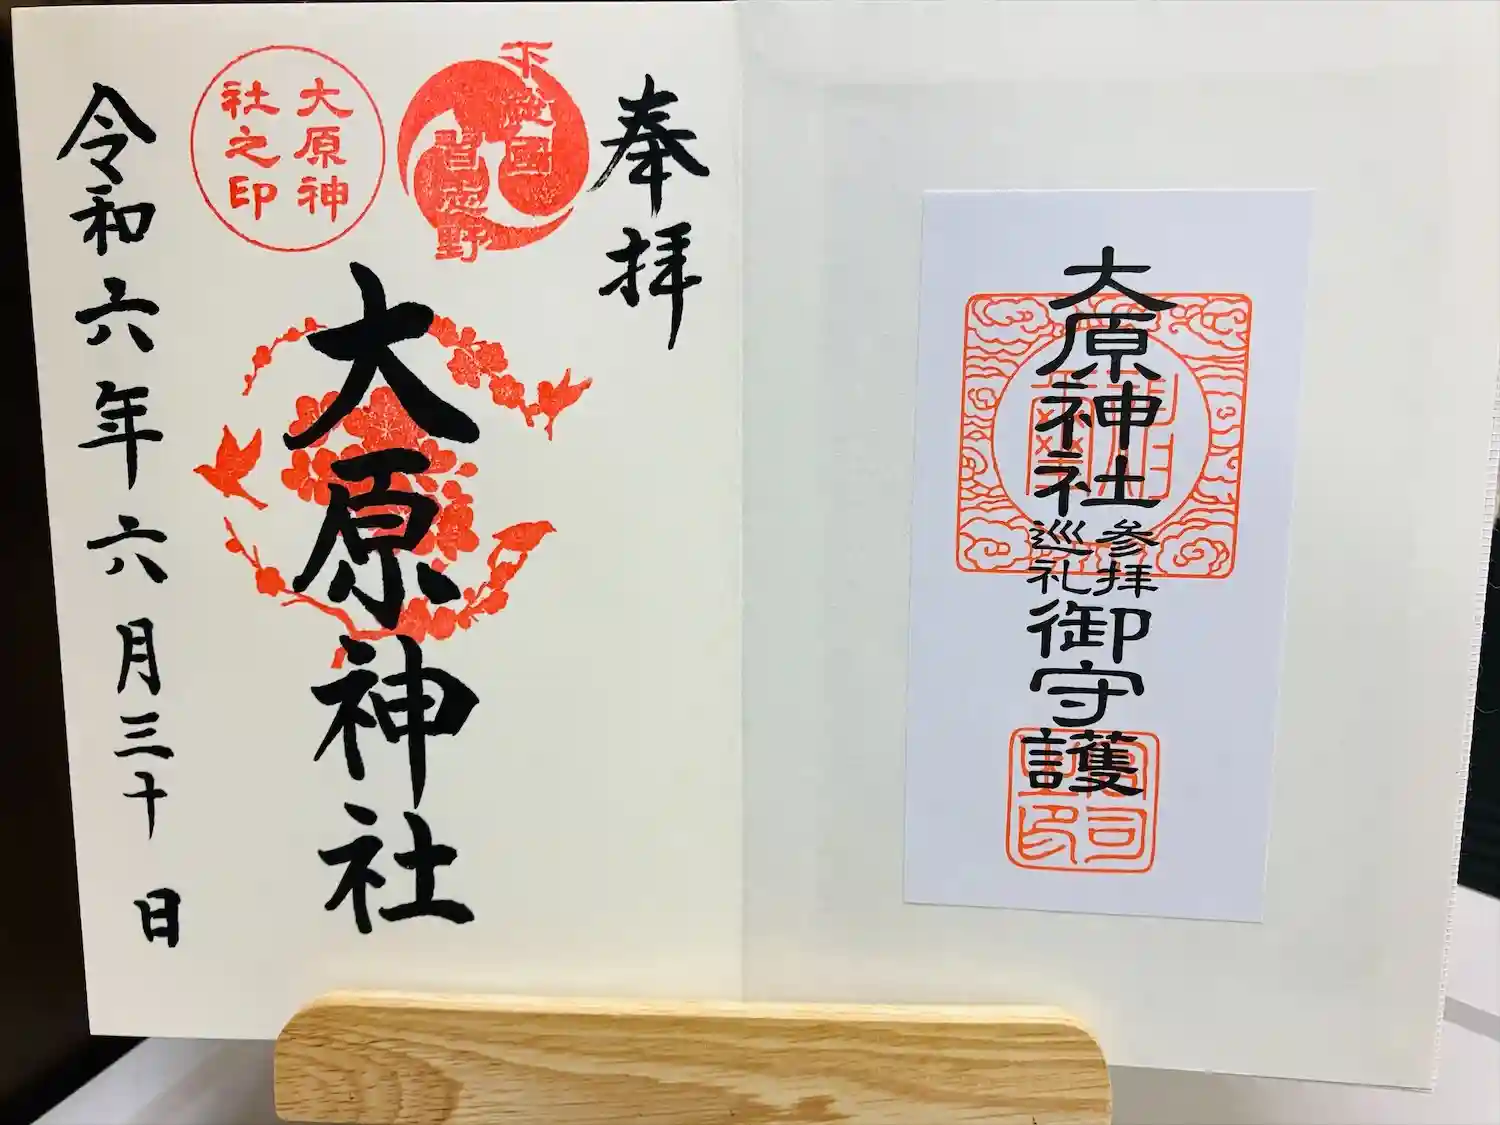 奉拝
下総國
習志野
大原神
社之印
大原神社
令和六年六月三十日
大原神社
参拝
巡礼
御守護